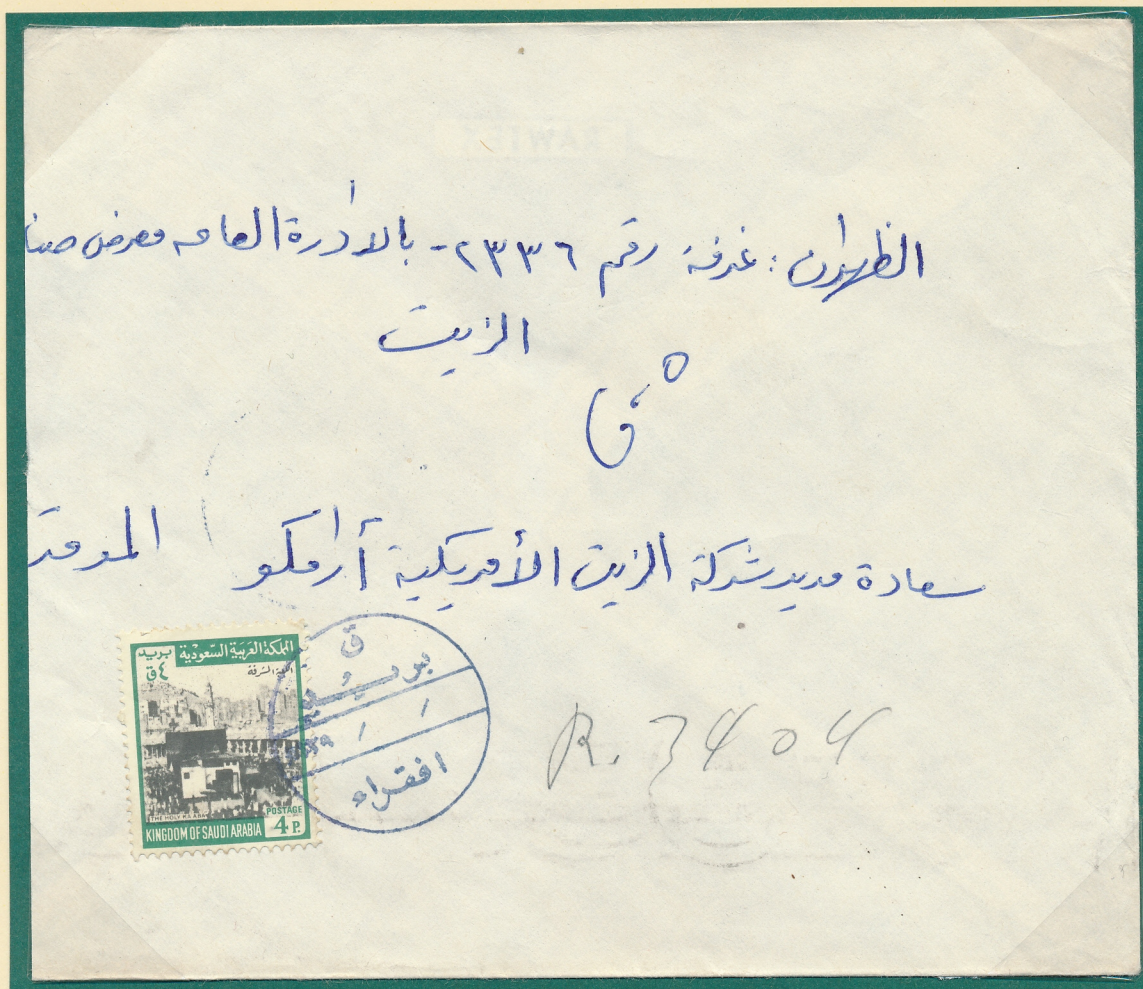 الظهران : غرفة رقم ٢٣٣٦ - بالادارة العامه معرض صنا
الزيت
سعادة مدير شركة الزيت الأمريكية أرامكو الموقر
المملكة العربية السعودية بريد
٤ق
الكعبة المشرفة
THE HOLY KAABA
POSTAGE
KINGDOM OF SAUDI ARABIA 4 P.
ق
بريد
افقراء
R. 3404